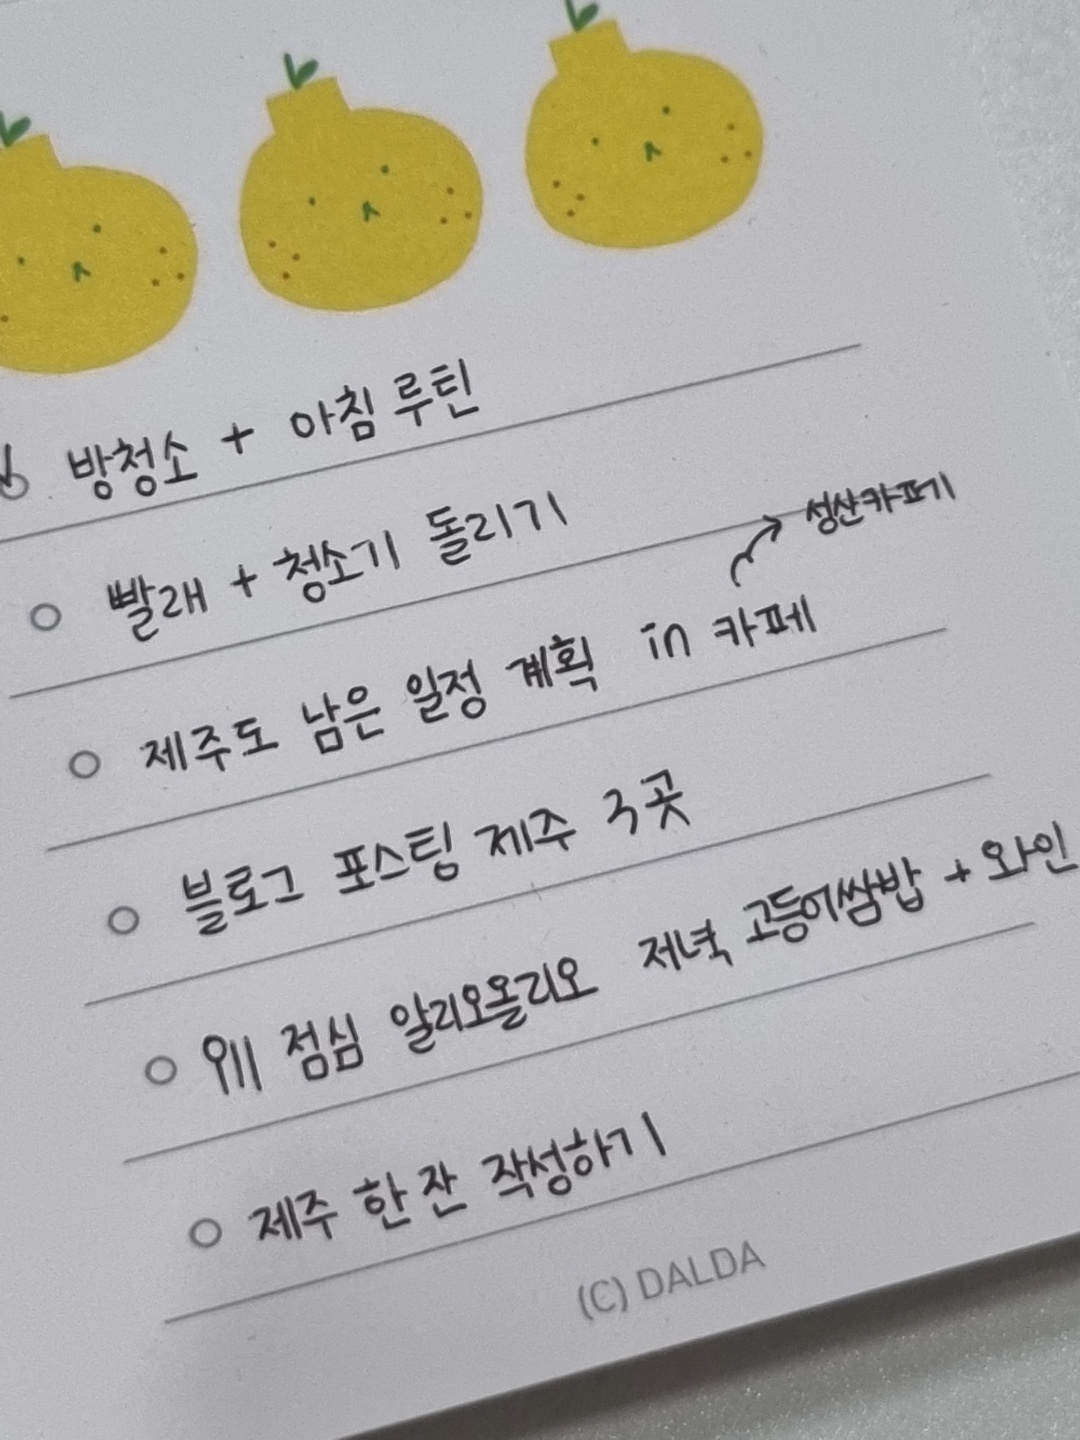 방청소 + 아침 루틴
빨래 + 청소기 돌리기
성산카페
제주도 남은 일정 계획 in 카페
블로그 포스팅 제주 3곳
점심 알리오올리오 저녁 고등어쌈밥 + 와인
제주 한 잔 작성하기
(C) DALDA